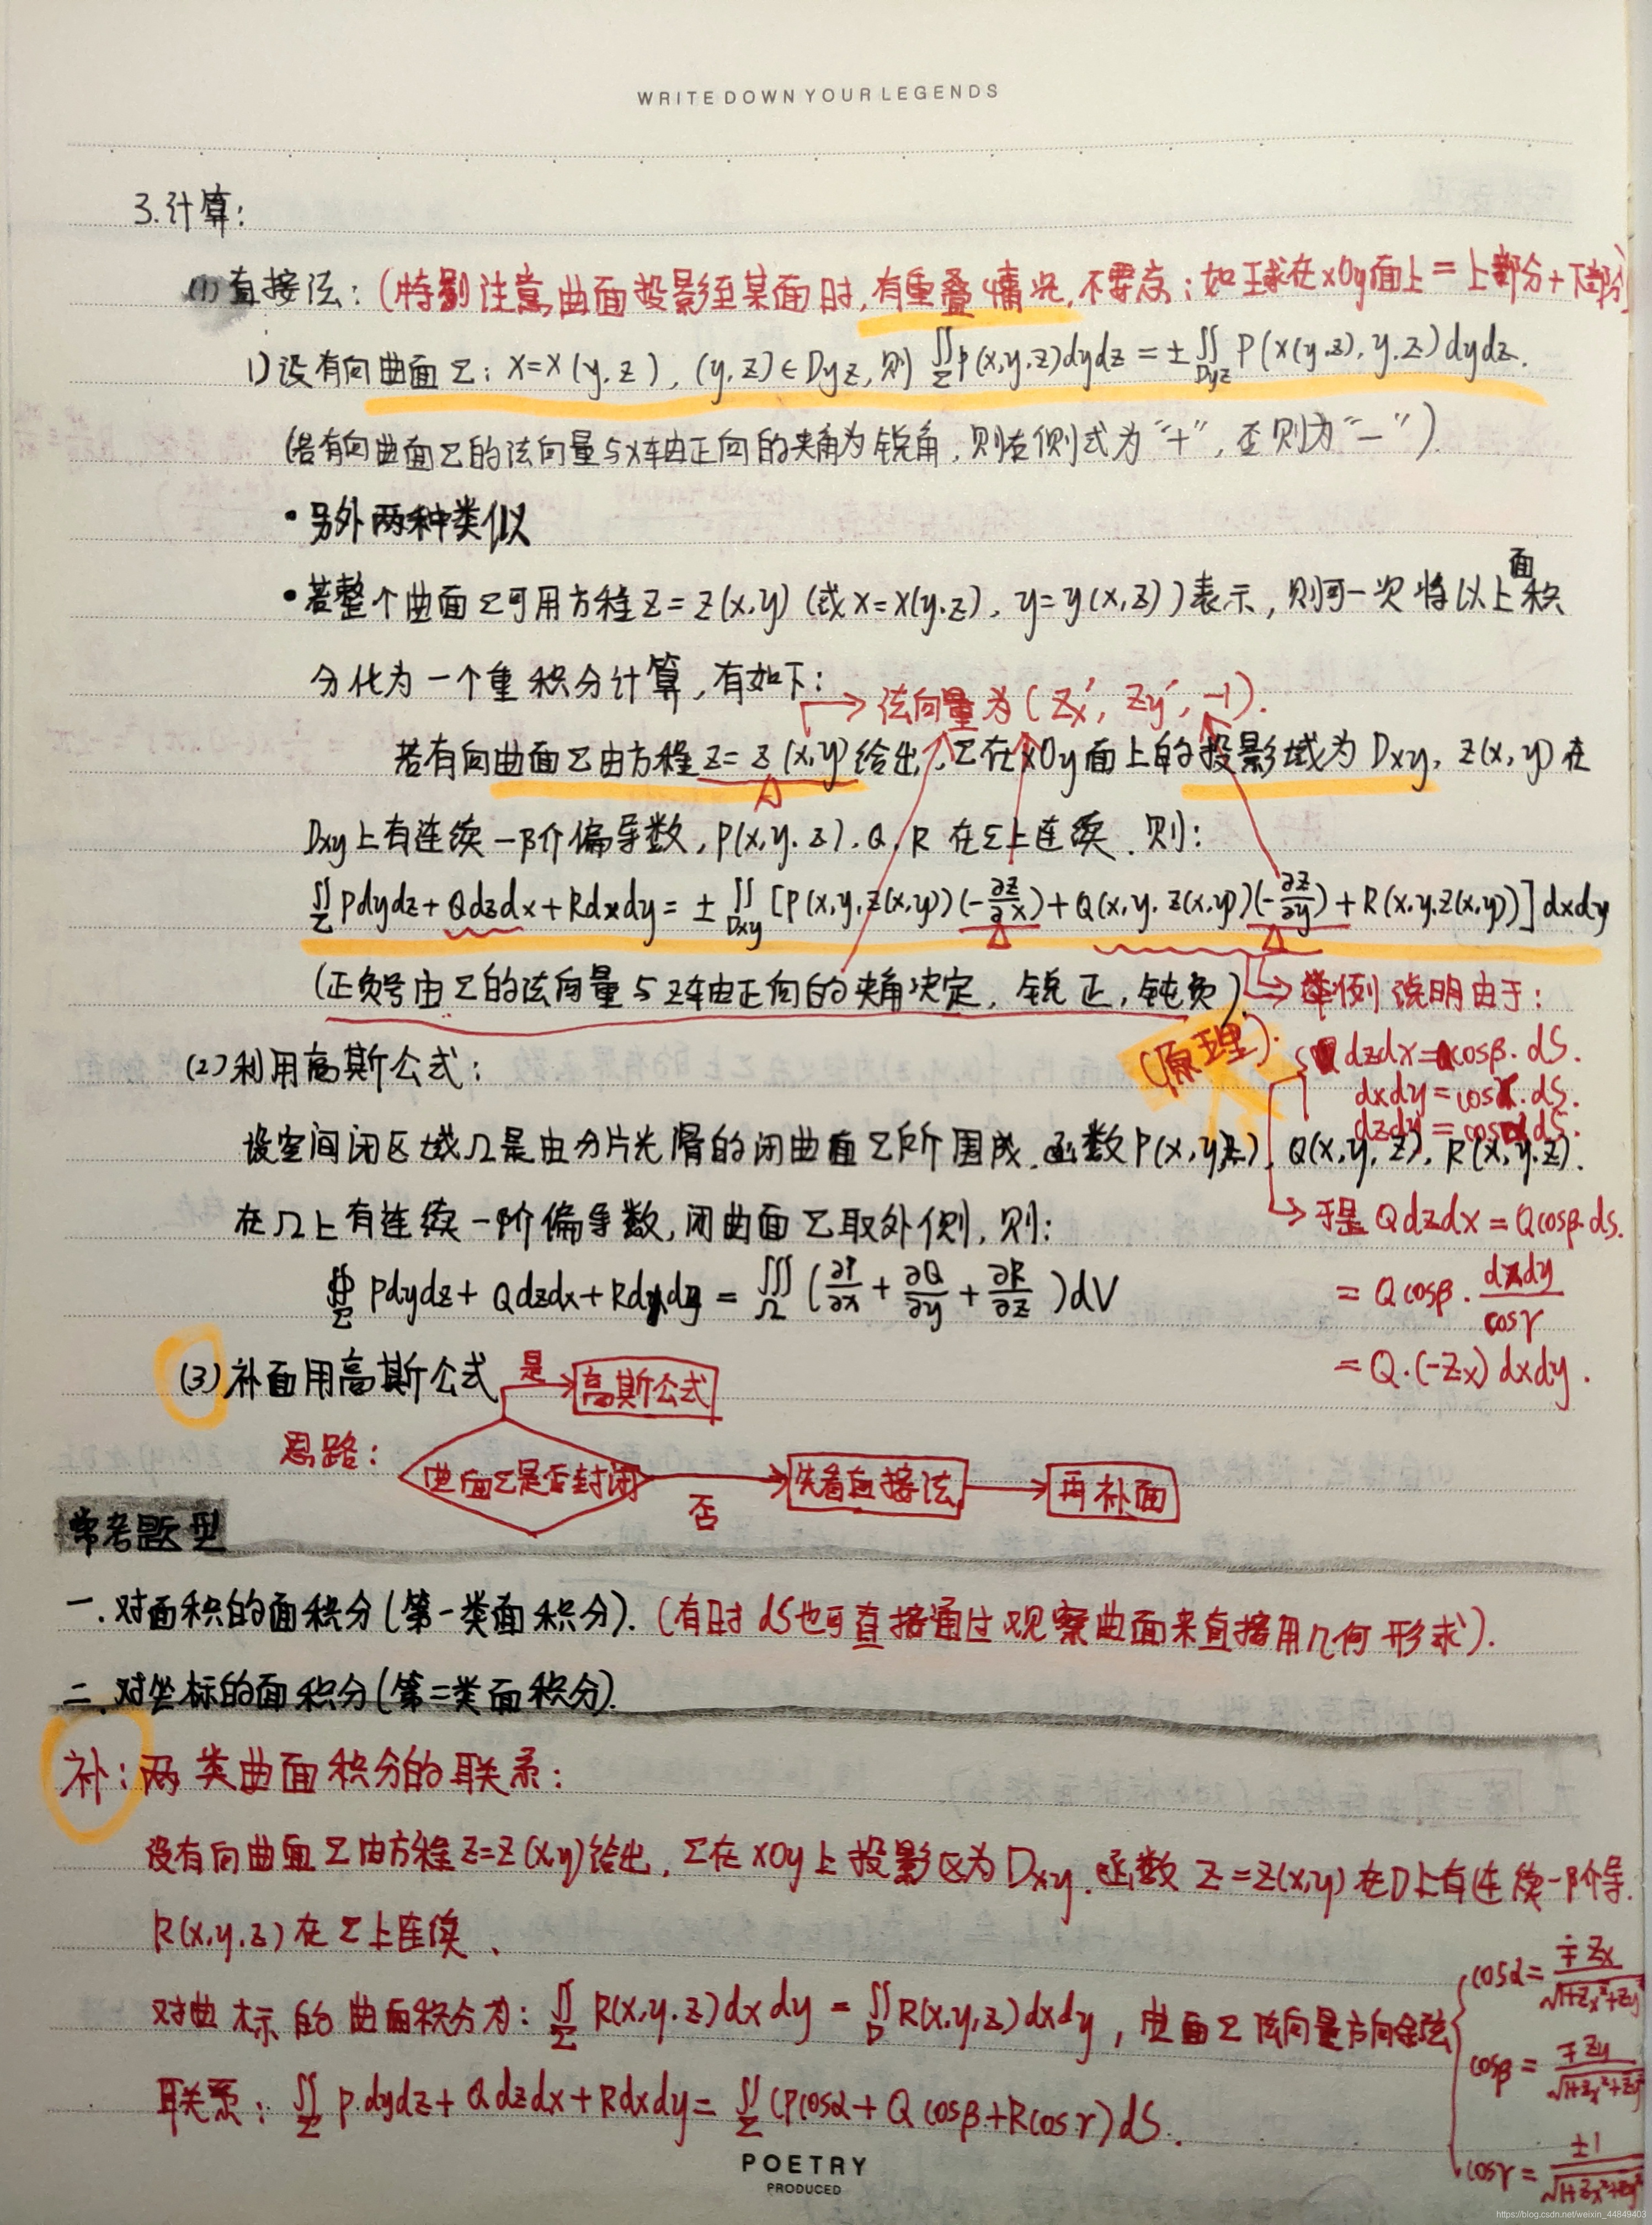 WRITE DOWN YOUR LEGENDS
3.计算:
(1)直接法:(特别注意曲面投影至某面时,有重叠情况,不要忘;如球在xOy面上=上部分+下部分)
1)设有向曲面Σ:x=x(y,z),(y,z)∈Dyz,则∬_Σ P(x,y,z)dydz=±∬_Dyz P(x(y,z),y,z)dydz.
(若有向曲面Σ的法向量与x轴正向的夹角为锐角,则右侧式为"+",否则为"-").
•另外两种类似
•若整个曲面Σ可用方程z=z(x,y)(或x=x(y,z),y=y(x,z))表示,则可一次将以上面积
分化为一个重积分计算,有如下:
→法向量为(Zx',Zy',-1).
若有向曲面Σ由方程z=z(x,y)给出,Σ在xOy面上的投影域为Dxy,z(x,y)在
Dxy上有连续一阶偏导数,P(x,y,z),Q,R在Σ上连续,则:
∬_Σ Pdydz+Qdzdx+Rdxdy=±∬_Dxy [P(x,y,z(x,y))(-∂z/∂x)+Q(x,y,z(x,y))(-∂z/∂y)+R(x,y,z(x,y))]dxdy
(正负号由Σ的法向量与z轴正向的夹角决定,锐正,钝负).
→举例说明由于:
(原理):
dzdx=cosβ·dS.
dxdy=cosγ·dS.
dzdy=cosα·dS.
(2)利用高斯公式:
设空间闭区域Ω是由分片光滑的闭曲面Σ所围成,函数P(x,y,z),Q(x,y,z),R(x,y,z).
在Ω上有连续一阶偏导数,闭曲面Σ取外侧,则:
→于是Qdzdx=Qcosβ·dS.
∯_Σ Pdydz+Qdzdx+Rdxdy=∭_Ω(∂P/∂x+∂Q/∂y+∂R/∂z)dV
=Qcosβ·dxdy/cosγ
=Q·(-Zx)dxdy.
(3)补面用高斯公式
是
高斯公式
思路:
曲面Σ是否封闭
否
先看直接法
再补面
常考题型
一.对面积的面积分(第一类面积分).(有时dS也可直接通过观察曲面来直接用几何形求).
二.对坐标的面积分(第二类面积分).
补:两类曲面积分的联系:
设有向曲面Σ由方程z=z(x,y)给出,Σ在xOy上投影区为Dxy.函数z=z(x,y)在D上有连续一阶导.
R(x,y,z)在Σ上连续、
对曲标的曲面积分为:∬_Σ R(x,y,z)dxdy=∬_D R(x,y,z)dxdy,曲面Σ法向量方向余弦
cosα=∓Zx/√(1+Zx²+Zy²)
cosβ=∓Zy/√(1+Zx²+Zy²)
cosγ=±1/√(1+Zx²+Zy²)
联系:∬_Σ P·dydz+Qdzdx+Rdxdy=∬_Σ(Pcosα+Qcosβ+Rcosγ)dS.
POETRY
PRODUCED
https://blog.csdn.net/weixin_44849403